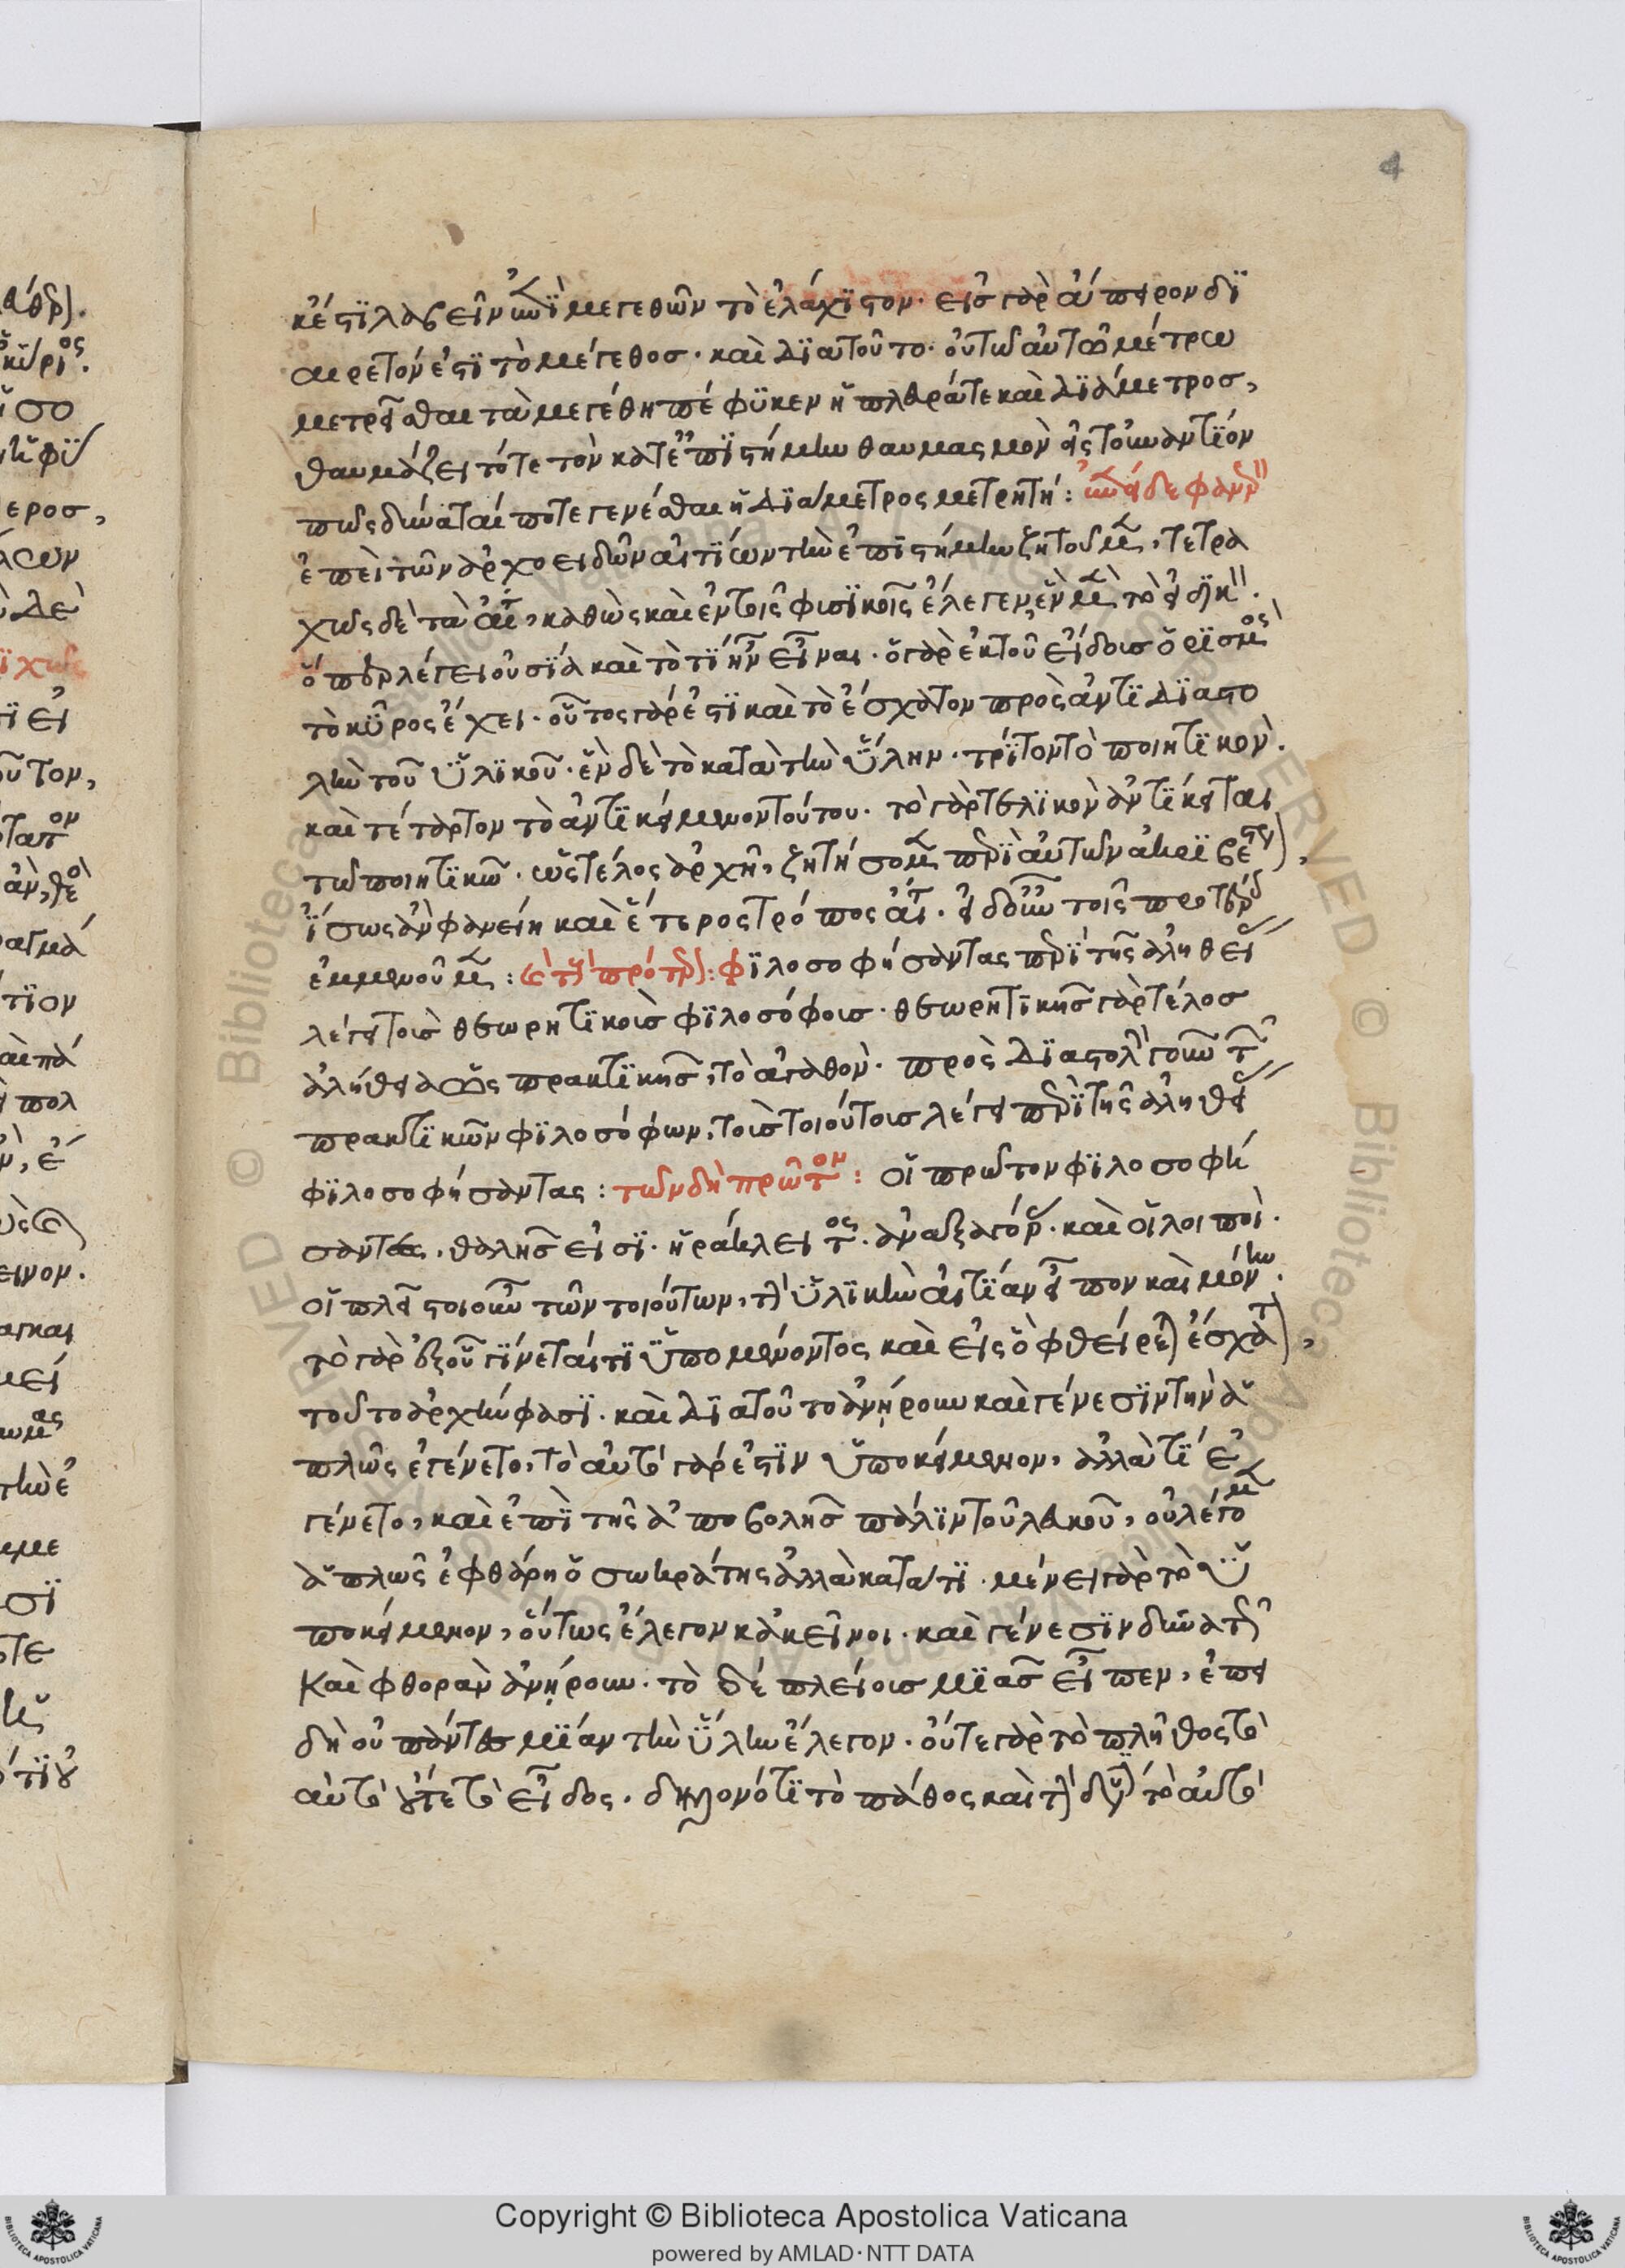 4
κἔστι λαβεῖν ἐπὶ μεγεθῶν τὸ ἐλάχιστον· εἰς γὰρ ἄπειρον δι
αιρετόν ἐστι τὸ μέγεθος· καὶ διατοῦτο· οὔτω αὐτῶ μέτρω
μετρεῖσθαι τὰ μεγέθη πέφυκεν ἡ πλευρά τε καὶ διάμετρος,
θαυμάζει τότε τὸν κατεπιστήμην θαυμασμὸν εἰς τοὐναντίον
πῶς δύναταί ποτε γενέσθαι ἡ διάμετρος μετρητή: ἐπεὶ δὲ φανερὸν
ἐπεὶ τῶν ἀρχοειδῶν αἰτίων τὴν ἐπιστήμην ζητοῦμεν, τετρα
χῶς δὲ τὰ αἴτια, καθὼς καὶ ἐν τοῖς φυσικοῖς ἐλέγεν, ἓν μὲν τὸ εἰδικὸν.
ὅπερ λέγει οὐσία καὶ τὸ τί ἦν εἶναι· ὁ γὰρ ἐκ τοῦ εἴδους ὁρισμὸς
τὸ κῦρος ἔχει· οὗτος γάρ ἐστι καὶ τὸ ἔσχατον πρὸς ἀντιδιαστο
λὴν τοῦ ὑλικοῦ· ἓν δὲ τὸ κατὰ τὴν ὕλην· τρίτον τὸ ποιητικὸν.
καὶ τέταρτον τὸ ἀντικείμενον τούτου· τὸ γὰρ τελικὸν ἀντίκειται
τῶ ποιητικῶ· ὡς τέλος ἀρχῆ, ζητήσομεν περὶ αὐτῶν ἀκριβέστερον,
ἴσως ἂν φανείη καὶ ἕτερος τρόπος αἰτίου· εἰδοῦν τοῖς προτέροις
ἐμμενοῦμεν: τοὺς πρότερον: φιλοσοφήσαντας περὶ τῆς ἀληθείας
λέγει τοὺς θεωρητικοὺς φιλοσόφους· θεωρητικῆς γὰρ τέλος
ἀλήθεια ὡς πρακτικῆς, τὸ ἀγαθόν· πρὸς διαστολὴν γοῦν τῶν
πρακτικῶν φιλοσόφων, τοὺς τοιούτους λέγει περὶ τῆς ἀληθείας
φιλοσοφήσαντας: τῶν δὴ πρῶτον: οἱ πρῶτον φιλοσοφή
σαντες, θαλῆς εἰσι· ἡράκλειτος· ἀναξαγόρας· καὶ οἱ λοιποὶ.
οἱ πλεῖστοι οὖν τῶν τοιούτων, τὴν ὑλικὴν αἰτίαν εἶπον καὶ μόνην.
τὸ γὰρ ἐξ οὗ γίνεταί τι ὑπομένοντος καὶ εἰς ὃ φθείρεται ἔσχατον,
τοῦτο ἀρχήν φασι· καὶ διατοῦτο ἀνήρουν καὶ γένεσιν τὴν ἁ
πλῶς ἐγένετο, τὸ αὐτὸ γάρ ἐστιν ὑποκείμενον, ἀλλὰ τὶ ἐ
γένετο, καὶ ἐπὶ τῆς ἀποβολῆς πάλιν τοῦ λευκοῦ, οὐ λέγομεν
ἁπλῶς ἐφθάρη ὁ σωκράτης ἀλλὰ κατά τι· μένει γὰρ τὸ ὑ
ποκείμενον, οὕτως ἔλεγον κἀκεῖνοι· καὶ γένεσιν
καὶ φθορὰν ἀνήρουν· τὸ δέ πλείους μιᾶς εἶπεν, ἐπει
δὴ οὐ πάντες μίαν τὴν ὕλην ἔλεγον· οὔτε γὰρ τὸ πλῆθος τὸ
αὐτὸ οὔτε τὸ εἶδος· δηλονότι τὸ πάθος καὶ τὴν τὸ αὐτὸ
Copyright © Biblioteca Apostolica Vaticana
powered by AMLAD·NTT DATA